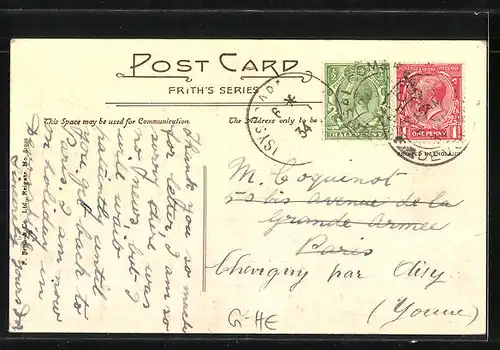 POST CARD
FRITH'S SERIES
This Space may be used for Communication.
The Address only to be
Thank you so much
for letter, I am so
sorry there was
no news, but I
will wait
patiently until
you get back to
Paris. I am now
on holiday in
sincerely yours
M. Coquenot
50 bis avenue de la
Grande Armée
Paris
Chevigny par Aisy
(Yonne)
G-HE
ONE PENNY
PRINTED IN ENGLAND
34
Ltd., Reigate.